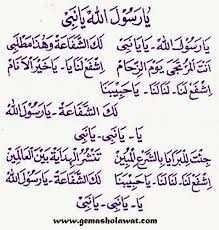 يَارَسُولَ اللهْ يَانَبِيْ
يَارَسُولَ اللهْ - يَايَانَبِيْ لَكَ الشَّفَاعَةْ وَهٰذَا مَطْلَبِيْ
اَنْتَ الْمُرْتَجَى يَوْمَ الزِّحَامْ اِشْفَعْ لَنَا يَا - يَاخَيْرَ الْاَنَامْ
اِشْفَعْ لَنَا - لَنَا لَنَا - يَاحَبِيْبَنَا
لَكَ الشَّفَاعَةْ - يَارَسُولَ اللهْ
يَا - يَانَبِيْ - يَانَبِيْ
جِئْتَ لِلْبَرَايَا بِالشَّرْعِ الْمُبِيْنْ تَنْشُرُ الْهِدَايَةْ بَيْنَ الْعَالَمِيْنْ
اِشْفَعْ لَنَا - لَنَا لَنَا - يَاحَبِيْبَنَا لَكَ الشَّفَاعَةْ - يَارَسُولَ اللهْ
يَا - يَانَبِيْ - يَانَبِيْ
www.gemasholawat.com